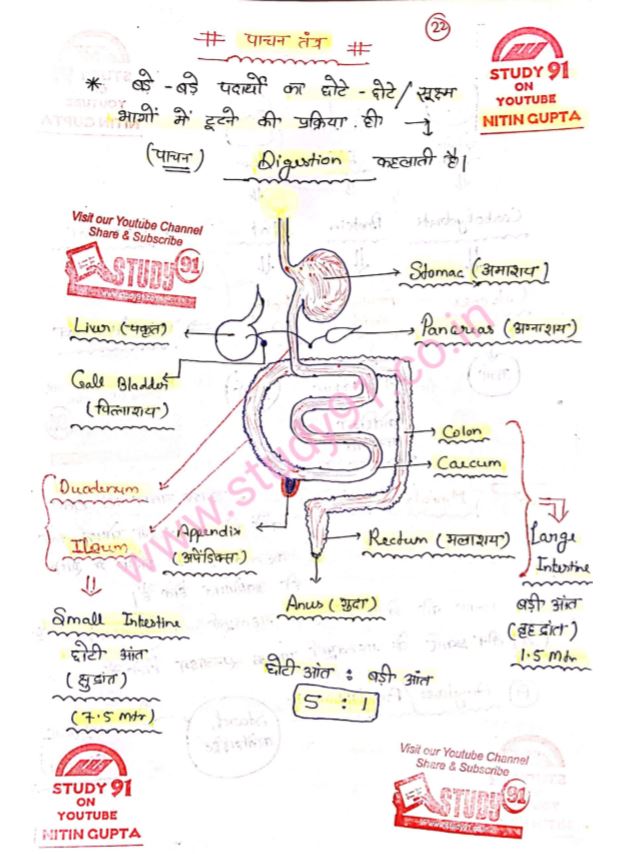 22
# पाचन तंत्र #
STUDY 91
ON
YOUTUBE
NITIN GUPTA
* बड़े - बड़े पदार्थों का छोटे - छोटे / सूक्ष्म
भागों में टूटने की प्रक्रिया ही →
(पाचन) Digestion कहलाती है।
Visit our Youtube Channel
Share & Subscribe
STUDY 91
www.study91.co.in
Stomac (अमाशय)
Liver (यकृत)
Pancreas (अग्नाशय)
Gall Bladder
(पित्ताशय)
Colon
Caecum
Duodenum
Ileum
Appendix
(अपेंडिक्स)
Rectum (मलाशय)
Large
Intestine
बड़ी आंत
(बृहदांत)
1.5 Mtr
Anus (गुदा)
Small Intestine
छोटी आंत
(क्षुद्रांत)
(7.5 Mtr)
छोटी आंत : बड़ी आंत
5 : 1
www.study91.co.in
STUDY 91
ON
YOUTUBE
NITIN GUPTA
Visit our Youtube Channel
Share & Subscribe
STUDY 91
www.study91.co.in